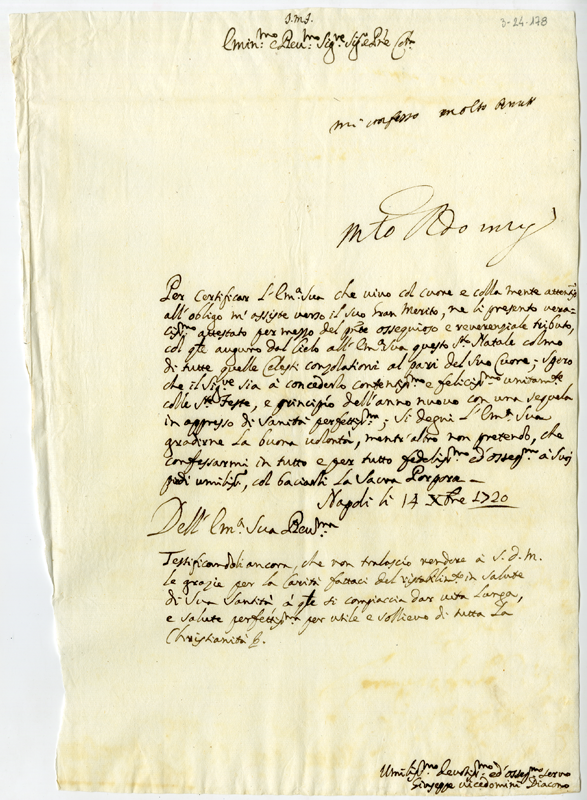 3-24-178
J.M.J.
Emin:mo e Reu:mo Sig:re Sig:re e Pñe Col:mo
mi confesso molto
Per certificar L'Em:a Sua che vivo col cuore e colla mente attento
all'obligo m'assiste verso il suo Gran Merito, ne li presento vera-
cissi:mo attestato per mezzo del pñte ossequioso e reverenziale tributo,
col qle auguro dal Cielo all'Em:a Sua questo S:to Natale colmo
di tutte quelle Celesti consolationi al pari del suo Cuore; Spero
che il Sig:re sia à concederlo contentiss:mo e feliciss:mo unitam:te
colle S:te Feste, e principio dell'anno nuovo con una seguela
in appresso di sanità perfettiss:ma; Si degni L'Em:a Sua
gradirne la buona volontà, mentr'altro non pretendo, che
confessarmi in tutto e per tutto fedeliss:mo ed osseq:mo a suoi
piedi umiliss:, col baciarli la Sacra Porpora –
Napoli li 14 Xbre 1720
Dell'Em:a Sua Reu:ma
Testificandoli ancora, che non tralascio rendere a S.D.M.
le grazie per la Carità fattaci del ristabilim:to in salute
di Sua Santità à qle si compiaccia dar vita lunga,
e salute perfettiss:ma per utile e sollievo di tutta la
Christianità
Umiliss:mo deuotiss:mo ed osseq:mo servo
Giuseppe Vicedomini Diacono